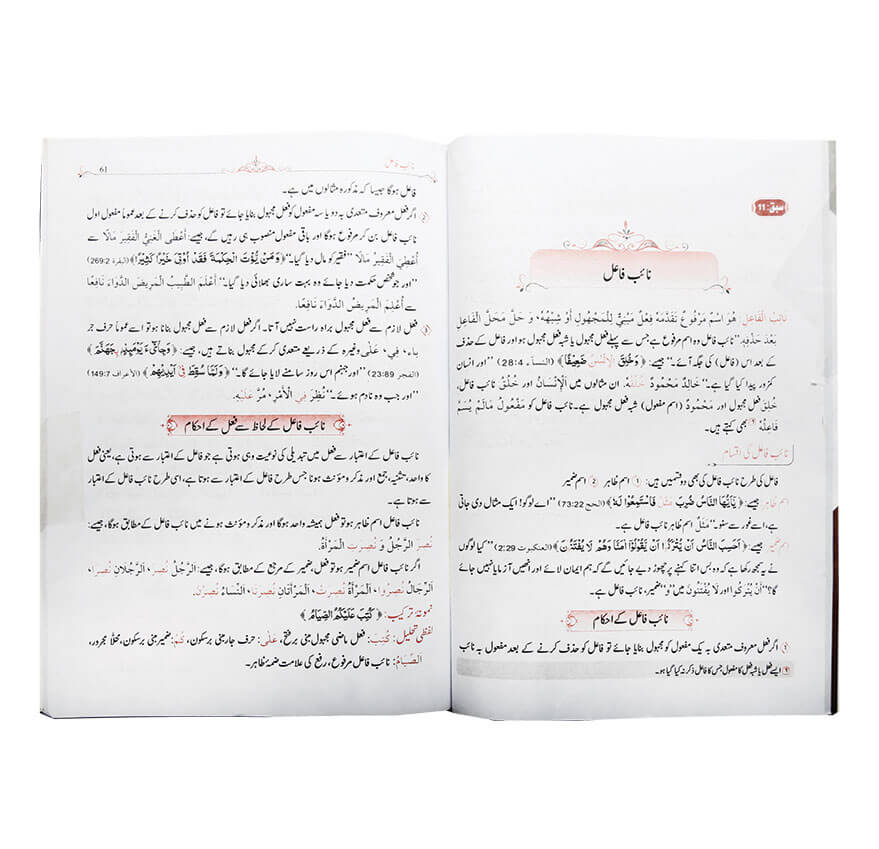 سبق: 11
نائب فاعل
نَائِبُ الْفَاعِلِ: هُوَ اسْمٌ مَرْفُوعٌ تَقَدَّمَهُ فِعْلٌ مَبْنِيٌّ لِلْمَجْهُولِ أَوْ شِبْهُهُ، وَ حَلَّ مَحَلَّ الْفَاعِلِ
بَعْدَ حَذْفِهِ. ”نائب فاعل وہ اسم مرفوع ہے جس سے پہلے فعل مجہول یا شبہ فعل مجہول ہو اور فاعل کے حذف
کے بعد اس (فاعل) کی جگہ آئے۔“ جیسے: ﴿وَخُلِقَ الْاِنْسٰنُ ضَعِيْفًا﴾ (النساء 28:4) ”اور انسان
کمزور پیدا کیا گیا ہے۔“ خَالِدٌ مَحْمُودٌ خُلُقُهُ. ان مثالوں میں اَلْإِنْسَانُ اور خُلُقُ نائب فاعل،
خُلِقَ فعل مجہول اور مَحْمُودٌ (اسم مفعول) شبہ فعل مجہول ہے۔ نائب فاعل کو مَفْعُولُ مَالَمْ يُسَمَّ
فَاعِلُهُ بھی کہتے ہیں۔
نائب فاعل کی اقسام
فاعل کی طرح نائب فاعل کی بھی دو قسمیں ہیں: ① اسم ظاہر ② اسم ضمیر
اسم ظاہر جیسے: ﴿يٰۤاَيُّهَا النَّاسُ ضُرِبَ مَثَلٌ فَاسْتَمِعُوْا لَهٗ﴾ (الحج 73:22) ”اے لوگو! ایک مثال دی جاتی
ہے، اسے غور سے سنو۔“ مَثَلٌ اسم ظاہر نائب فاعل ہے۔
اسم ضمیر جیسے: ﴿اَحَسِبَ النَّاسُ اَنْ يُّتْرَكُوْۤا اَنْ يَّقُوْلُوْۤا اٰمَنَّا وَهُمْ لَا يُفْتَنُوْنَ﴾ (العنكبوت 2:29) ”کیا لوگوں
نے یہ سمجھ رکھا ہے کہ وہ بس اتنا کہنے پر چھوڑ دیے جائیں گے کہ ہم ایمان لائے اور انھیں آزمایا نہیں جائے
گا؟“ أَنْ يُتْرَكُوا اور لَا يُفْتَنُونَ میں ”و“ ضمیر، نائب فاعل ہے۔
نائب فاعل کے احکام
① اگر فعل معروف متعدی بہ یک مفعول کو مجہول بنایا جائے تو فاعل کو حذف کرنے کے بعد مفعول بہ نائب
ایسے فعل یا شبہ فعل کا مفعول جس کا فاعل ذکر نہ کیا گیا ہو۔
نائب فاعل 61
فاعل ہوگا جیسا کہ مذکورہ مثالوں میں ہے۔
② اگر فعل معروف متعدی بہ دو یا سہ مفعول کو فعل مجہول بنایا جائے تو فاعل کو حذف کرنے کے بعد عموماً مفعول اول
نائب فاعل بن کر مرفوع ہوگا اور باقی مفعول منصوب ہی رہیں گے، جیسے: أَعْطَى الْغَنِيُّ الْفَقِيرَ مَالًا سے
أُعْطِيَ الْفَقِيرُ مَالًا ”فقیر کو مال دیا گیا۔“ ﴿وَمَنْ يُّؤْتَ الْحِكْمَةَ فَقَدْ اُوْتِيَ خَيْرًا كَثِيْرًا﴾ (البقرة 269:2)
”اور جو شخص حکمت دیا جائے وہ بہت ساری بھلائی دیا گیا۔“ أَعْلَمَ الطَّبِيبُ الْمَرِيضَ الدَّوَاءَ نَافِعًا
سے أُعْلِمَ الْمَرِيضُ الدَّوَاءَ نَافِعًا.
③ فعل لازم سے فعل مجہول براہ راست نہیں آتا۔ اگر فعل لازم سے فعل مجہول بنانا ہو تو اسے عموماً حرف جر
باء، فِي، عَلٰى وغیرہ کے ذریعے متعدی کر کے مجہول بناتے ہیں، جیسے: ﴿وَجِايْٓءَ يَوْمَىِٕذٍۭ بِجَهَنَّمَ﴾
(الفجر 23:89) ”اور جہنم اس روز سامنے لایا جائے گا۔“ ﴿وَلَمَّا سُقِطَ فِيْۤ اَيْدِيْهِمْ﴾ (الأعراف 149:7)
”اور جب وہ نادم ہوئے۔“ نُظِرَ فِي الْأَمْرِ، مُرَّ عَلَيْهِ.
نائب فاعل کے لحاظ سے فعل کے احکام
نائب فاعل کے اعتبار سے فعل میں تبدیلی کی نوعیت وہی ہوتی ہے جو فاعل کے اعتبار سے ہوتی ہے، یعنی فعل
کا واحد، تثنیہ، جمع اور مذکر و مؤنث ہونا جس طرح فاعل کے اعتبار سے ہوتا ہے، اسی طرح نائب فاعل کے اعتبار
سے ہوتا ہے۔
نائب فاعل اسم ظاہر ہو تو فعل ہمیشہ واحد ہوگا اور مذکر و مؤنث ہونے میں نائب فاعل کے مطابق ہوگا، جیسے:
نُصِرَ الرَّجُلُ وَ نُصِرَتِ الْمَرْأَةُ.
اگر نائب فاعل اسم ضمیر ہو تو فعل، ضمیر کے مرجع کے مطابق ہوگا، جیسے: اَلرَّجُلُ نُصِرَ، اَلرَّجُلَانِ نُصِرَا،
اَلرِّجَالُ نُصِرُوا، اَلْمَرْأَةُ نُصِرَتْ، اَلْمَرْأَتَانِ نُصِرَتَا، اَلنِّسَاءُ نُصِرْنَ.
نمونۂ ترکیب: ﴿كُتِبَ عَلَيْكُمُ الصِّيَامُ﴾
لفظی تحلیل: كُتِبَ: فعل ماضی مجہول مبنی بر فتح، عَلٰى: حرف جار مبنی بر سکون، كُمْ: ضمیر مبنی بر سکون، محلاً مجرور،
اَلصِّيَامُ: نائب فاعل مرفوع، رفع کی علامت ضمۂ ظاہر۔